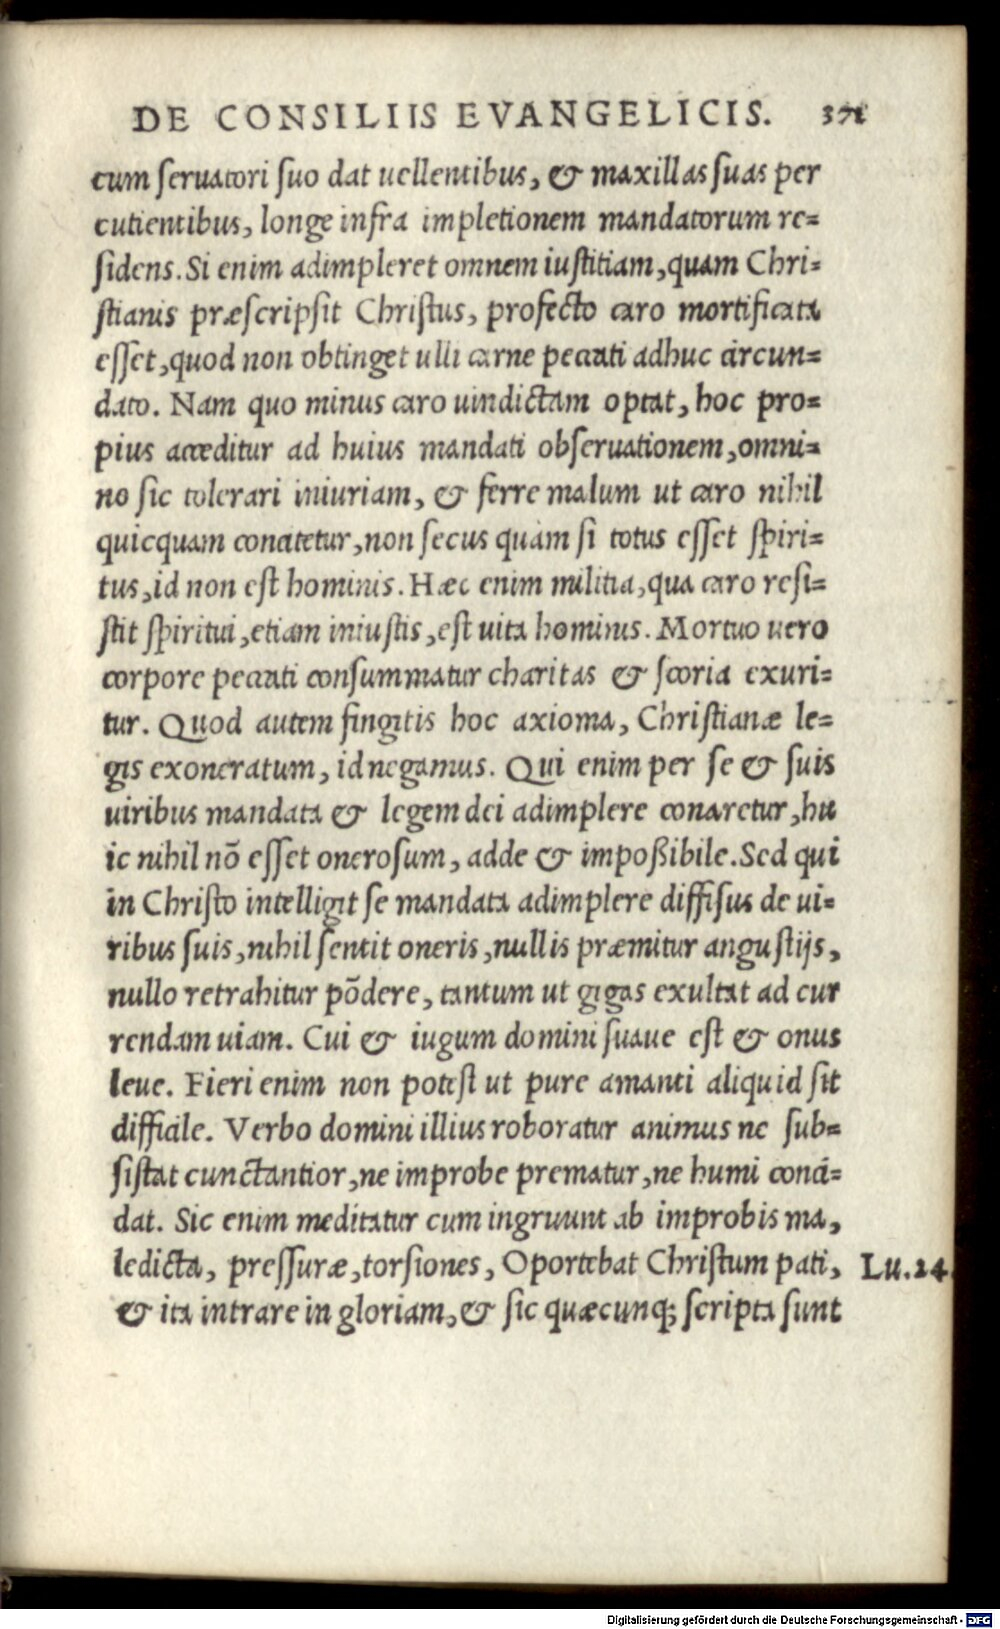 DE CONSILIIS EVANGELICIS. 371
cum seruatori suo dat uellentibus, & maxillas suas per
cutientibus, longe infra impletionem mandatorum re=
sidens. Si enim adimpleret omnem iustitiam, quam Chri=
stianis præscripsit Christus, profecto caro mortificata
esset, quod non obtinget ulli carne peccati adhuc circun=
dato. Nam quo minus caro uindictam optat, hoc pro=
pius acceditur ad huius mandati obseruationem, omni=
no sic tolerari iniuriam, & ferre malum ut caro nihil
quicquam conatetur, non secus quàm si totus esset spiri=
tus, id non est hominis. Hæc enim militia, qua caro resi=
stit spiritui, etiam iniustis, est uita hominis. Mortuo uero
corpore peccati consummatur charitas & scoria exuri=
tur. Quod autem fingitis hoc axioma, Christianæ le=
gis exoneratum, id negamus. Qui enim per se & suis
uiribus mandata & legem dei adimplere conaretur, hu
ic nihil nō esset onerosum, adde & impoßibile. Sed qui
in Christo intelligit se mandata adimplere diffisus de ui=
ribus suis, nihil sentit oneris, nullis præmitur angustijs,
nullo retrahitur pōdere, tantum ut gigas exultat ad cur
rendam uiam. Cui & iugum domini suaue est & onus
leue. Fieri enim non potest ut pure amanti aliquid sit
difficile. Verbo domini illius roboratur animus ne sub=
sistat cunctantior, ne improbe prematur, ne humi conci=
dat. Sic enim meditatur cum ingruunt ab improbis ma,
ledicta, pressuræ, torsiones, Oportebat Christum pati, Lu.24.
& ita intrare in gloriam, & sic quæcunq; scripta sunt
Digitalisierung gefördert durch die Deutsche Forschungsgemeinschaft - DFG